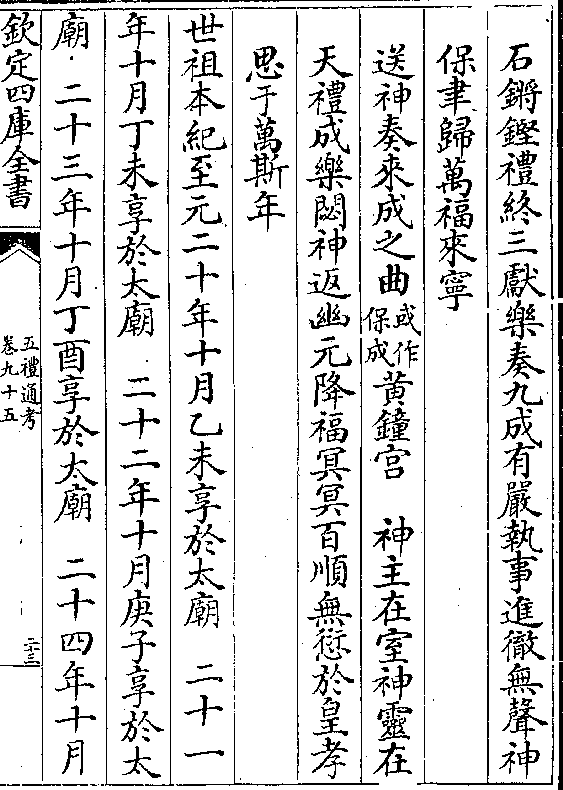 石鏘鏗禮終三獻樂奏九成有嚴執事進徹無聲神
保聿歸萬福來寧
送神奏來成之曲或作保成黄鐘宫　神主在室神靈在
天禮成樂闋神返幽元降福冥冥百順無愆於皇孝
思于萬斯年
世祖本紀至元二十年十月乙未享於太廟　二十一
年十月丁未享於太廟　二十二年十月庚子享於太
廟　二十三年十月丁酉享於太廟　二十四年十月
欽定四庫全書
五禮通考
卷九十五
二十三